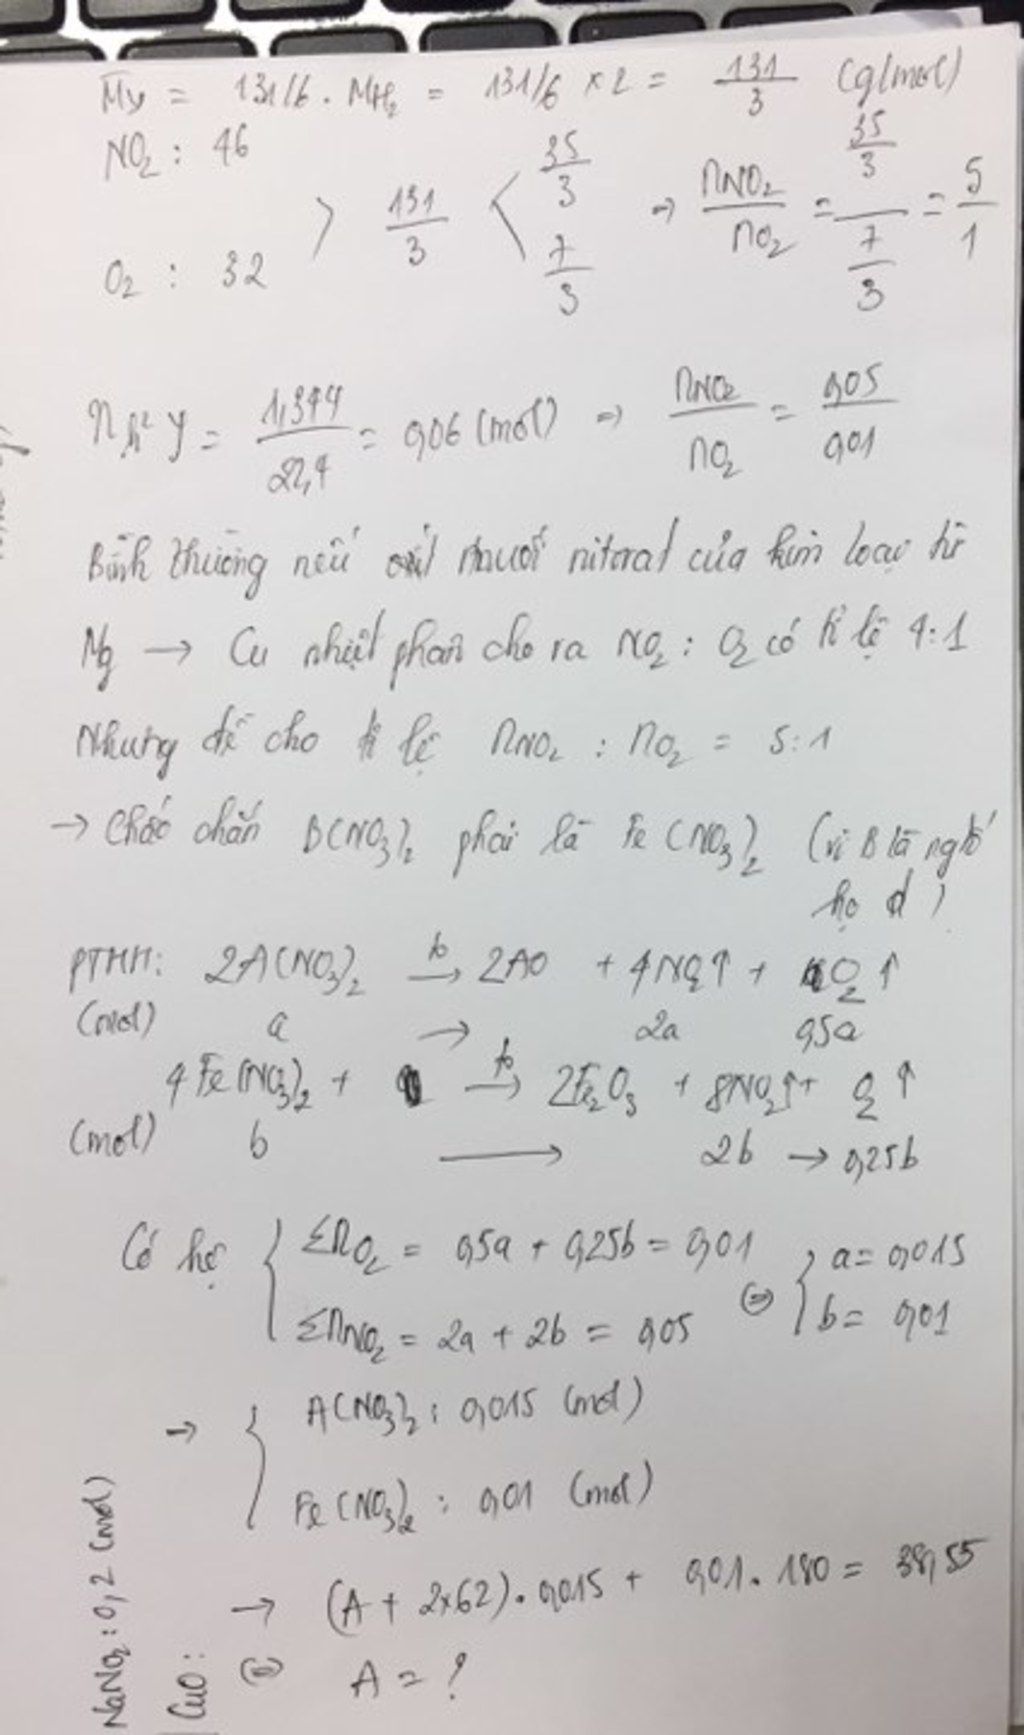 M̅y = 131/6 . MH₂ = 131/6 × 2 = 131/3 (g/mol)
NO₂ : 46
> 131/3 < 35/3 7/3 → nNO₂/nO₂ = 35/3 / 7/3 = 5/1
O₂ : 32
n h² y = 1,344/22,4 = 0,06 (mol) → nNO₂/nO₂ = 0,05/0,01
Bình thường nếu muối nitorat của kim loại từ
Mg → Cu nhiệt phân cho ra NO₂ : O₂ có tỉ lệ 4:1
Nhưng đề cho tỉ lệ nNO₂ : nO₂ = 5:1
→ Chắc chắn B(NO₃)₂ phải là Fe(NO₃)₂ (vì B là ngtố
họ d)
PTHH: 2A(NO₃)₂ t° → 2AO + 4NO₂↑ + O₂↑
(mol) a → 2a 0,5a
4Fe(NO₃)₂ + t° → 2Fe₂O₃ + 8NO₂↑ + O₂↑
(mol) b → 2b → 0,25b
Có hệ { ΣnO₂ = 0,5a + 0,25b = 0,01
ΣnNO₂ = 2a + 2b = 0,05
⇔ { a = 0,015
b = 0,01
→ { A(NO₃)₂ : 0,015 (mol)
Fe(NO₃)₂ : 0,01 (mol)
→ (A + 2×62).0,015 + 0,01.180 = 38,55
⇔ A = ?
NaNO₂ : 0,2 (mol)
CuO :